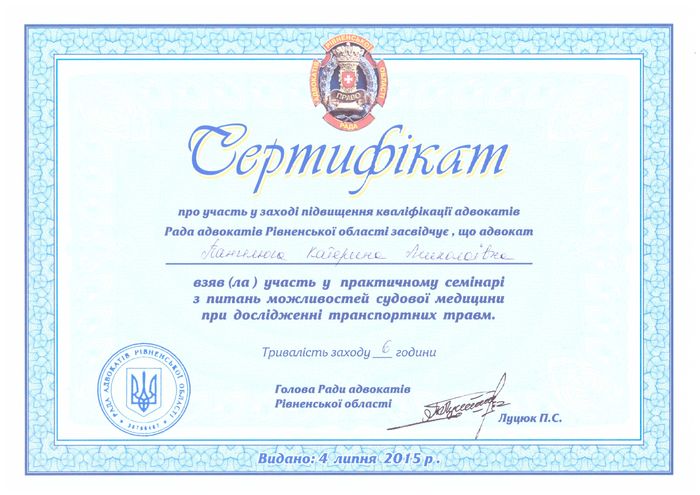 АДВОКАТІВ РІВНЕНСЬКОЇ ОБЛАСТІ
ПРАВО
РАДА
Сертифікат
про участь у заході підвищення кваліфікації адвокатів
Рада адвокатів Рівненської області засвідчує , що адвокат
Катерина Миколаївна
взяв (ла) участь у практичному семінарі
з питань можливостей судової медицини
при дослідженні транспортних травм.
Тривалість заходу 6 години
РАДА АДВОКАТІВ РІВНЕНСЬКОЇ ОБЛАСТІ
Голова Ради адвокатів
Рівненської області
Луцюк П.С.
Видано: 4 липня 2015 р .